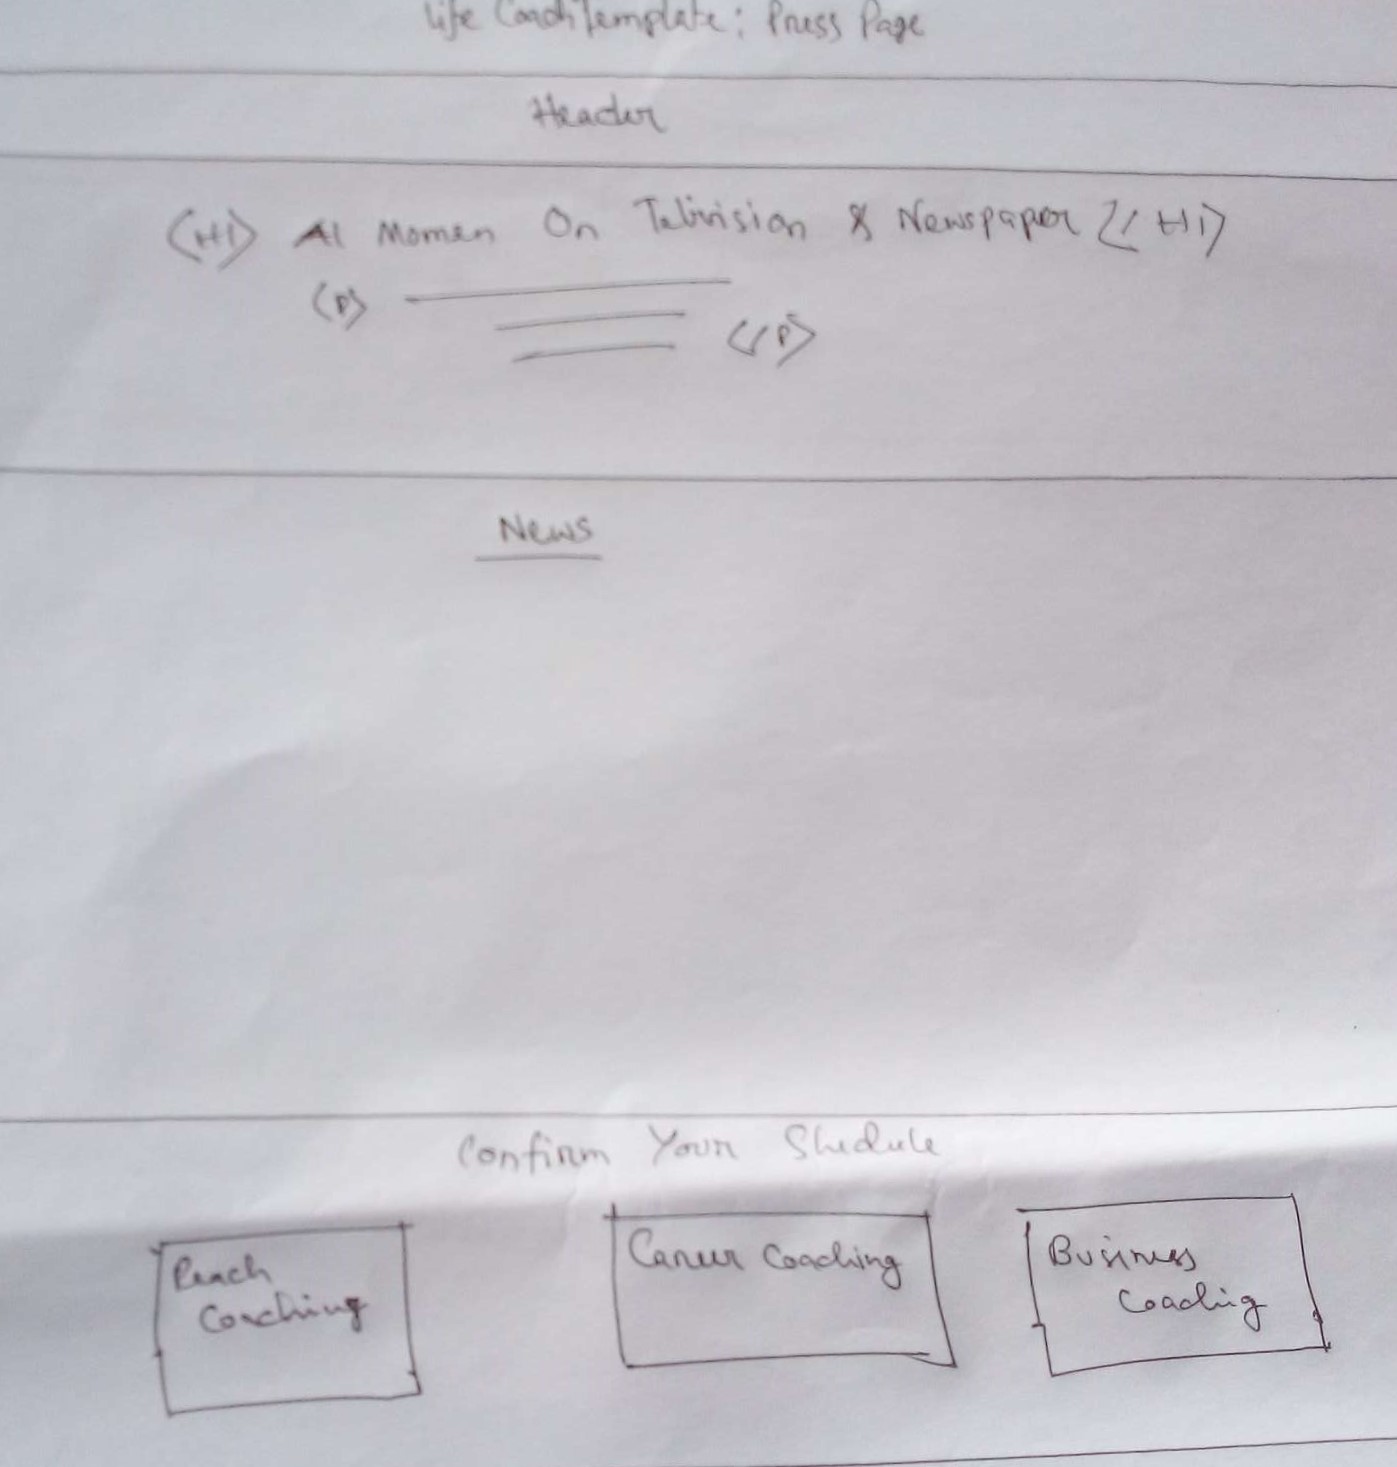 Life Coach Template: Press Page
Header
<H1> Al Momen On Telivision & Newspaper </H1>
<P>
</P>
News
Confirm Your Shedule
Coaching
Career Coaching
Business
Coaching